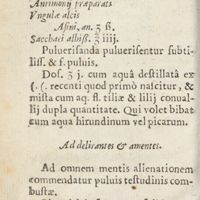 Antimonij præparati
Vngulæ alcis
Asini, an. ʒ ß.
Sacchari albiß. ʒ iiij.
Puluerisanda puluerisentur subti-
liss. & f. puluis.
Dos. ʒ j. cum aquâ destillatâ ex
(. (. recenti quod primò nascitur, &
mista cum aq. fl. tiliæ & lilij conual-
lij dupla quantitate. Qui volet bibat
cum aqua hirundinum vel picarum.
Ad delirantes & amentes.
Ad omnem mentis alienationem
commendatur puluis testudinis com-
bustæ.